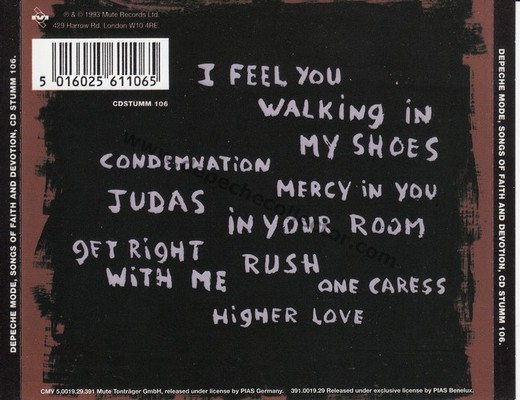 ℗ & © 1993 Mute Records Ltd.
429 Harrow Rd. London W10 4RE.
5 016025 611065
CDSTUMM 106
I FEEL YOU
WALKING iN
MY SHOES
CONDEMNATiON
MERCY iN YOU
JUDAS
iN YOUR ROOM
gET RigHT
WiTH ME
RUSH
ONE CARESS
HigHER LOVE
CMV 5.0019.29.391 Mute Tonträger GmbH, released under license by PIAS Germany. 391.0019.29 Released under exclusive license by PIAS Benelux.
DEPECHE MODE, SONGS OF FAITH AND DEVOTION, CD STUMM 106.
DEPECHE MODE, SONGS OF FAITH AND DEVOTION, CD STUMM 106.
www.depechecollector.com